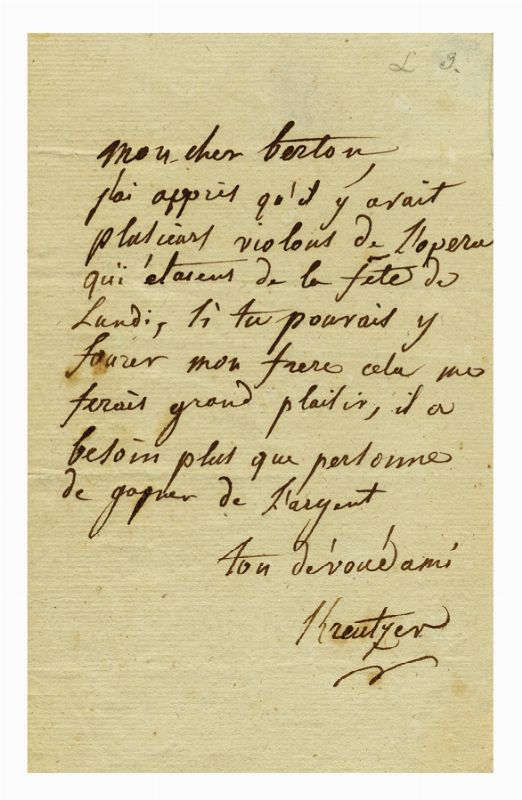 L 3.
mon cher berton,
j'ai appris qu'il y avait
plusieurs violons de l'opera
qui étasens de la fête de
Lundi, si tu pouvais y
fourer mon frere cela me
ferais grand plaisir, il a
besoin plus que personne
de gagner de l'argent
ton dévoué ami
Kreutzer